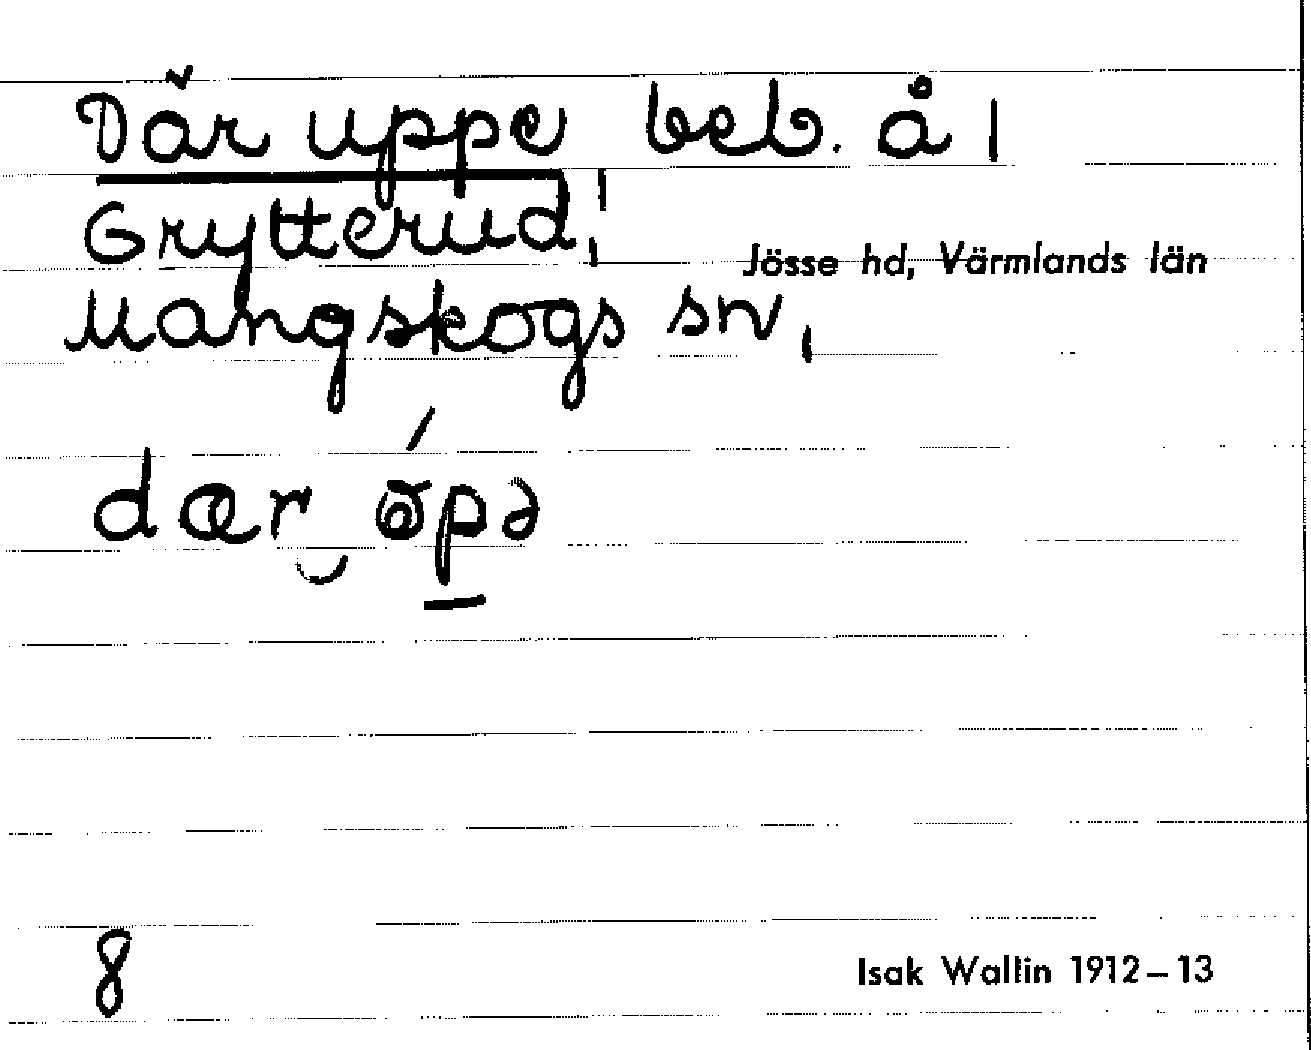 Där uppe beb. å |
Grytterud,
Jösse hd, Värmlands län
Mangskogs sn,
dær ópə
8
Isak Wallin 1912–13